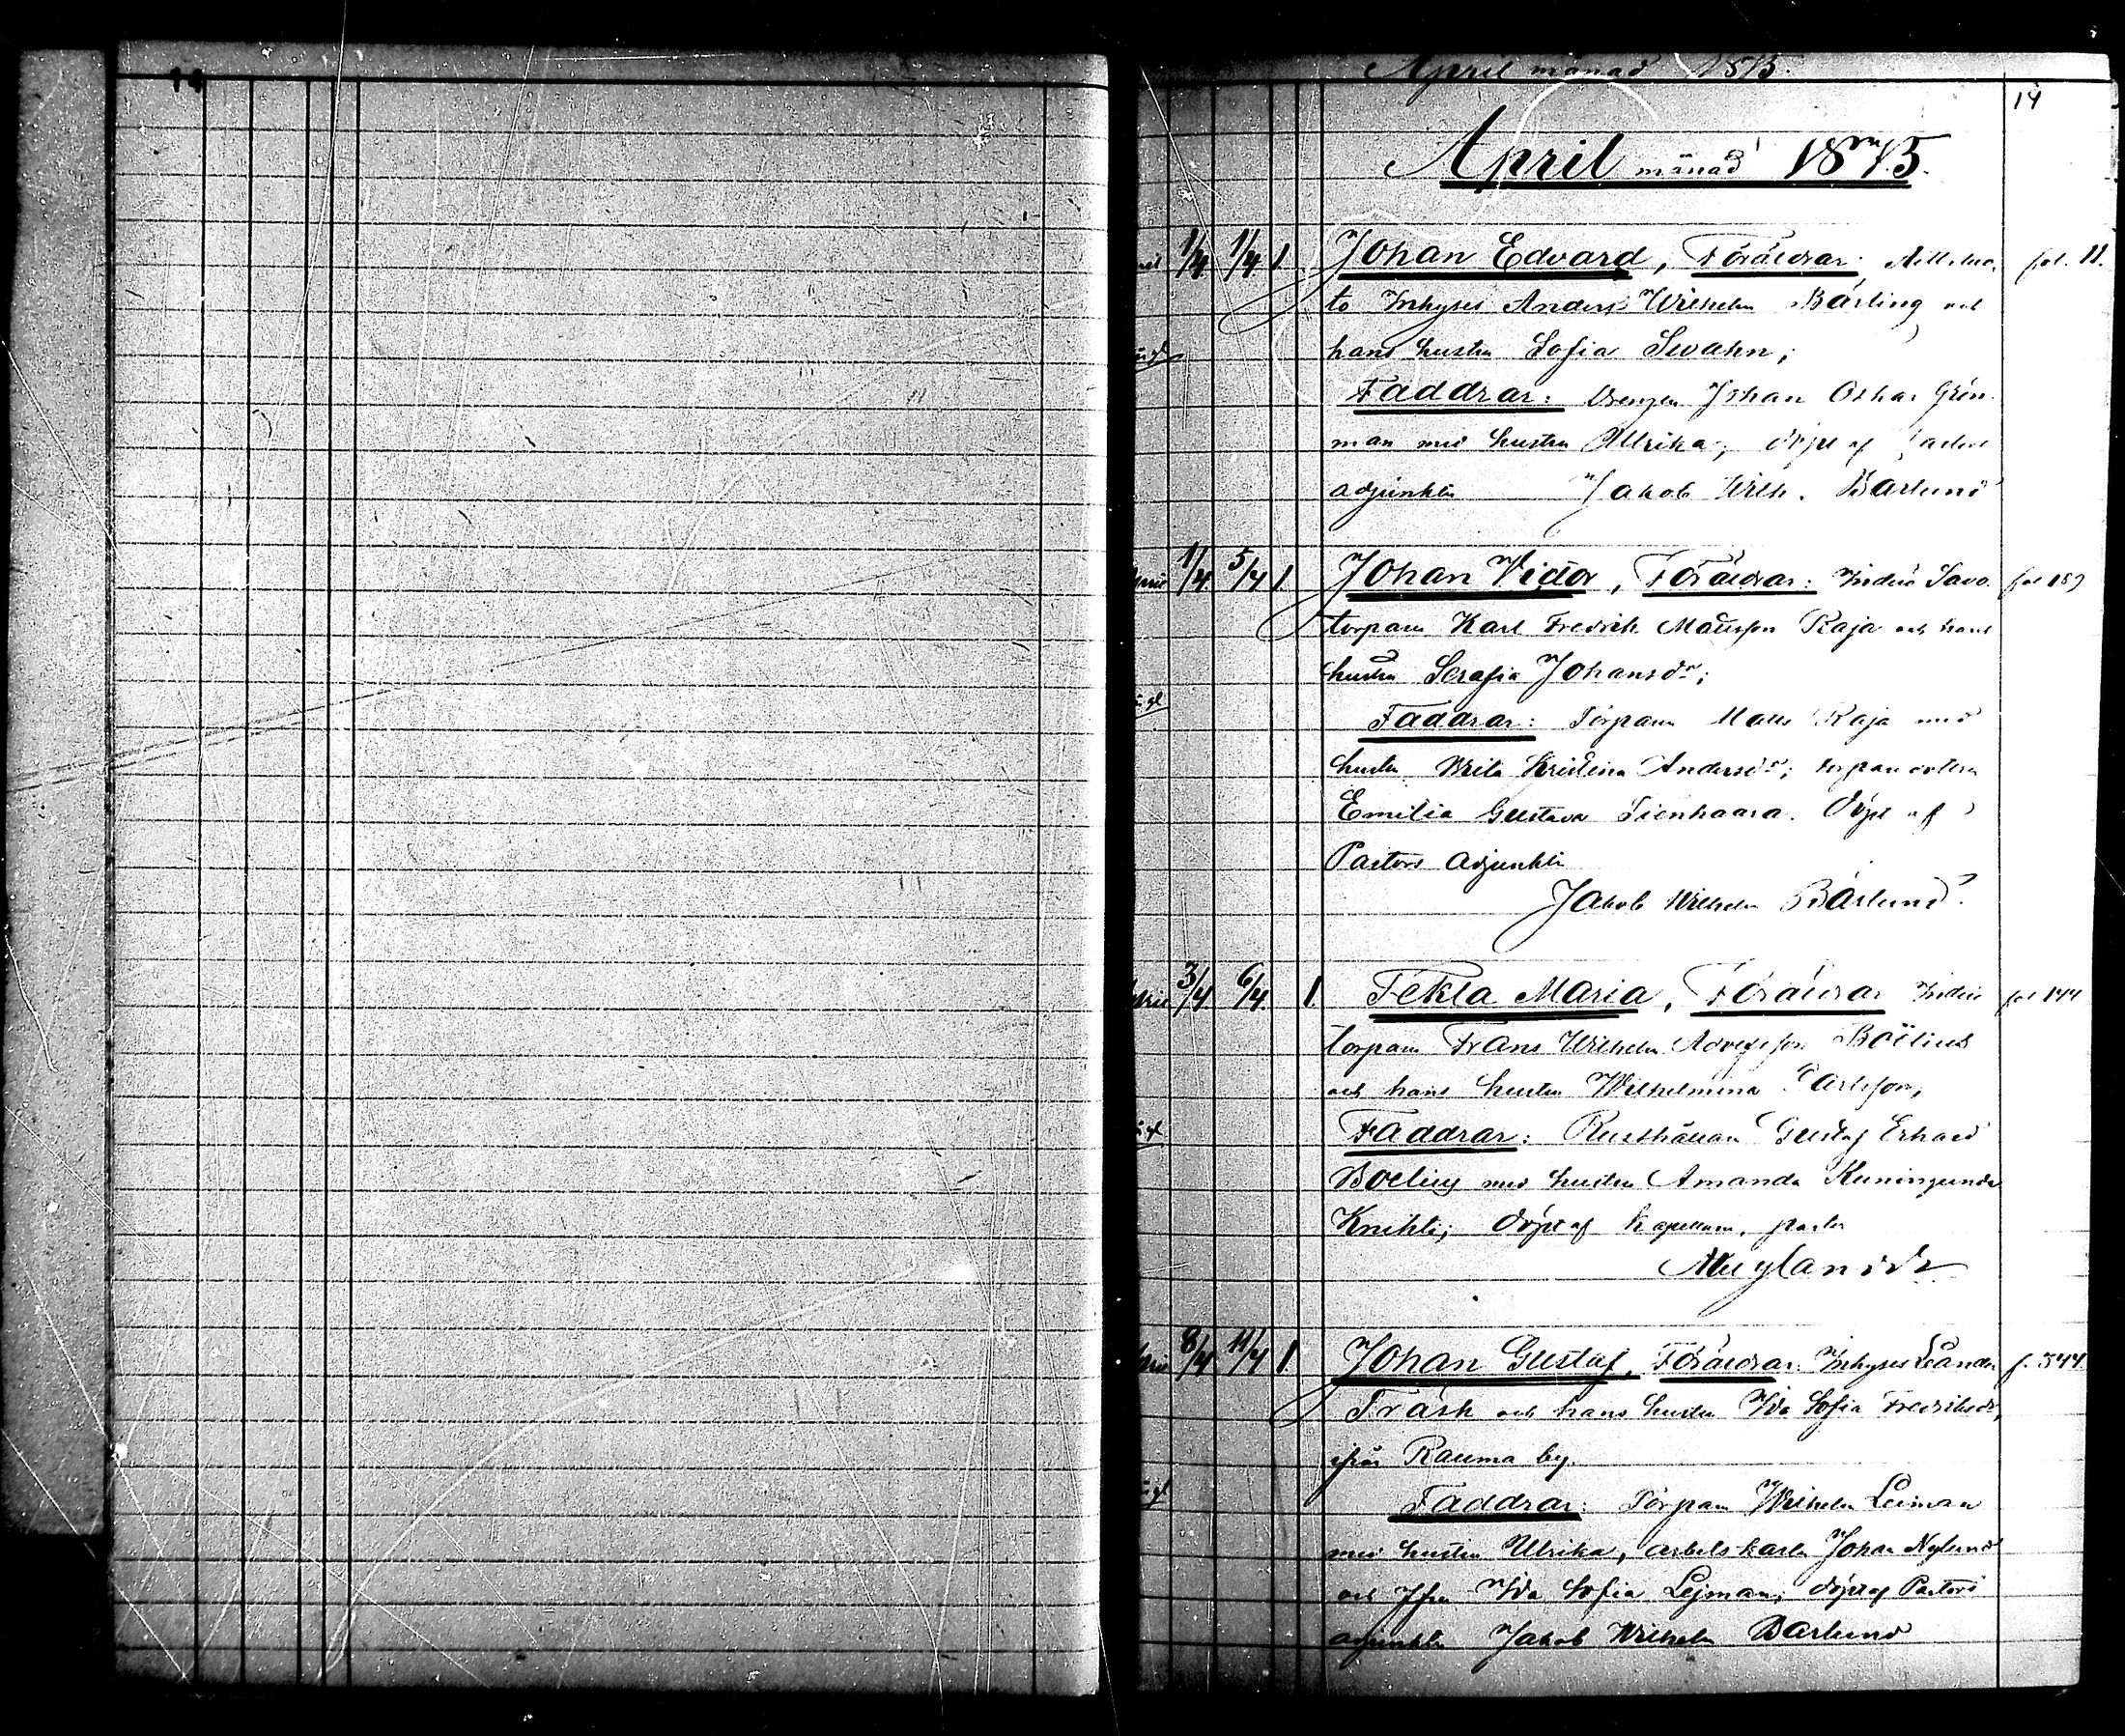 April månad 1875.
14
14
April månad 1875.
1/4 1/4 1. Johan Edvard, Föräldrar: fol. 11.
to Inhyses Anders Wilhelm Bärling och
hans hustru Sofia Swahn;
Faddrar: Drengen Johan Oskar Grön-
man med hustru Ulrika; döpt af
adjunkten Jakob Wilh. Bärlund
1/4 5/4 1. Johan Victor, Föräldrar: Inderö Savo fol 189
torparn Karl Fredrik Matsson Raja och hans
hustru Serafia Johansdr;
Faddrar: Torparn Matts Raja med
hustru Brita Kristina Andersdr; torparedottern
Emilia Gustava Tienhaara. Döpt af
Pastors adjunkten
Jakob Wilhelm Bärlund.
3/4 6/4 1. Tekla Maria, Föräldrar fol 144
torparn Frans Wilhelm Boëlius
och hans hustru Wilhelmina Carlsson,
Faddrar: Rusthållarn Gustaf Erhard
Boelius med hustru Amanda Kuningunda
Knihti; döpt af Kapellanen, pastor
8/4 11/4 1 Johan Gustaf, Föräldrar: Inhyses Leander f. 544
Träsk och hans hustru Ida Sofia Fredriksdr,
ifrån Rauma by.
Faddrar: Torparn Wilhelm Leiman
med hustru Ulrika, arbetskarln Johan Nylund
och Jfru Ida Sofia Lejman; döpt af Pastors
adjunkten Jakob Wilhelm Bärlund